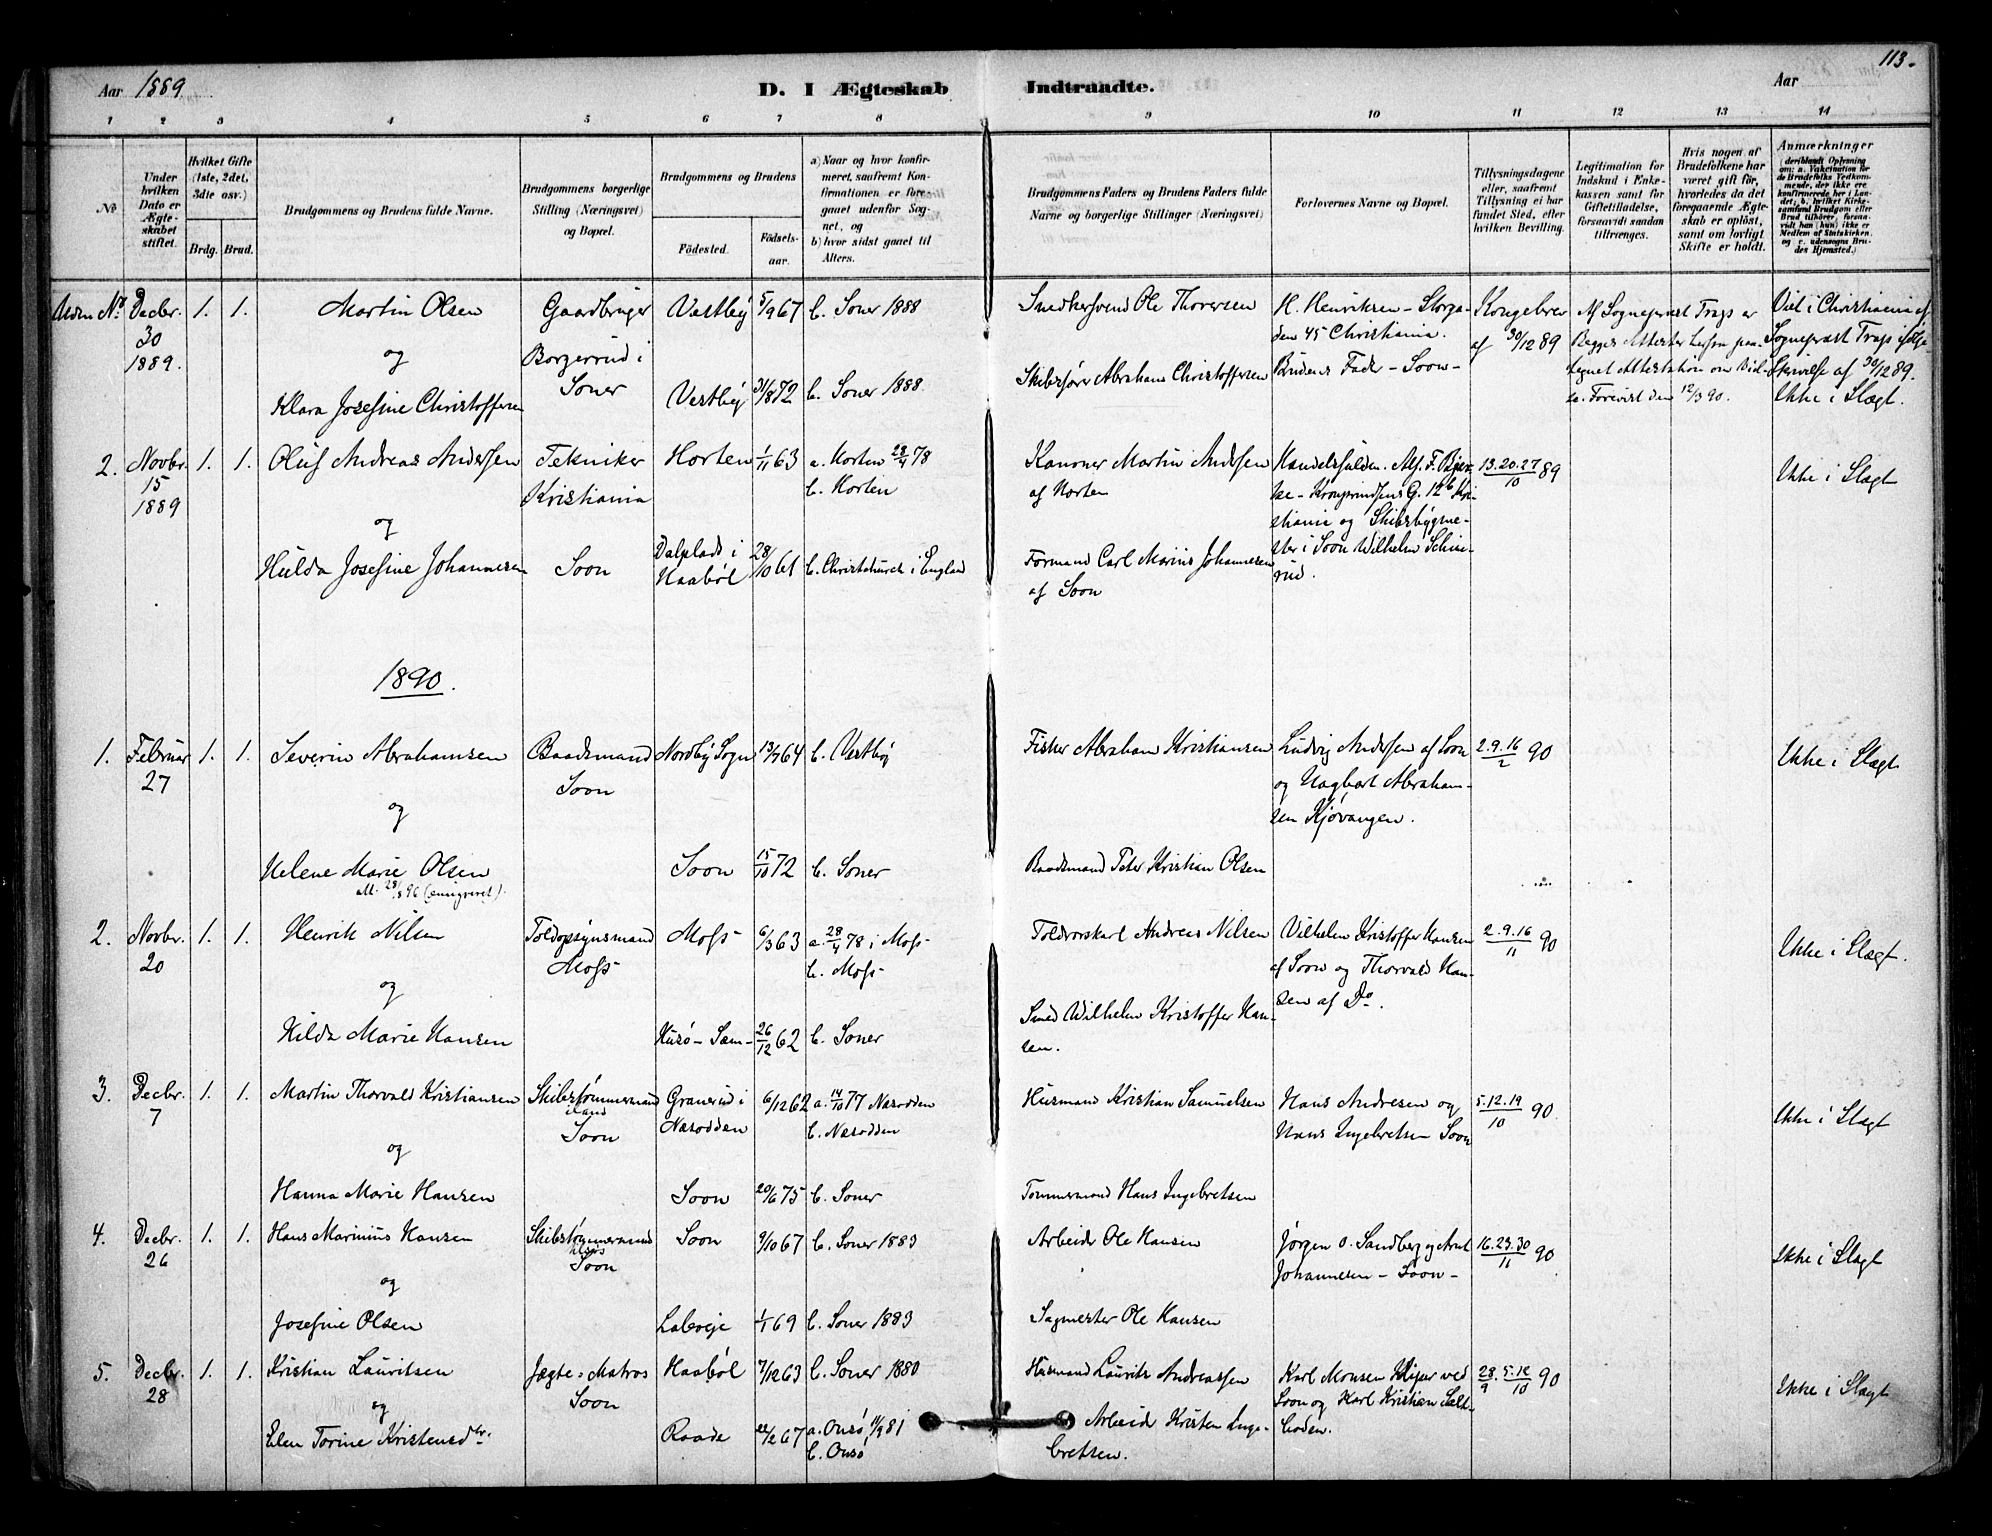 113.
Aar 1889 D. I Ægteskab Indtraadte. Aar
1 2 3 4 5 6 7 8 9 10 11 12 13 14
№
Under hvilken Dato er Ægteskabet stiftet.
Hvilket Gifte (1ste, 2det, 3die osv.)
Brdg. Brud.
Brudgommens og Brudens fulde Navne.
Brudgommens borgerlige Stilling (Næringsvei) og Bopæl.
Brudgommens og Brudens
Födested. Födselsaar.
a) Naar og hvor konfirmeret, saafremt Konfirmationen er foregaaet udenfor Sognet, og
b) hvor sidst gaaet til Alters.
Brudgommens Faders og Brudens Faders fulde Navne og borgerlige Stillinger (Næringsvei)
Forlovernes Navne og Bopæl.
Tillysningsdagene eller, saafremt Tillysning ei har fundet Sted, efter hvilken Bevilling.
Legitimation for Indskud i Enkekassen samt for Giftetilladelse, forsaavidt saadan tiltrænges.
Hvis nogen af Brudefolkene har været gift før, hvorledes da det foregaaende Ægteskab er oplöst, samt om lovligt Skifte er holdt.
Anmærkninger
(deriblandt Oplysning om: a. Vakcination for de Brudefolks Vedkommende, der ikke ere konfirmerede her i Landet; b. hvilket Kirkesamfund Brudgom eller Brud tilhörer, forsaavidt han (hun) ikke er Medlem af Statskirken, og c. udensogns Brudes Hjemsted.)
Uden No Decbr. 30 1889. 1. 1. Martin Olsen Gaardbruger Borgerrud i Soner Vestby 5/9 67 b. Soner 1888 Snedkersvend Ole Thoresen H. Henriksen - Storgaden 45 Christiania. Kongebrev af 30/12 89 Af Sognepræst Trags er Viet i Christiania af
og
Klara Josefine Christoffersen Vestby 31/8 72 b. Soner 1888. Skibsfører Abraham Christoffersen Brudens Fader - Soon - Forevist den 12/3 90. Sognepræst Trags ifølge Skrivelse af 30/12 89. Ikke i Slægt.
2. Novbr. 15 1889 1. 1. Oluf Andreas Andersen Tekniker Kristiania Horten 1/11 63 a. Horten 28/4 78 b. Horten Kanoner Martin Andersen af Horten 13.20.27/10 89 Ikke i Slægt
og
Hulda Josefine Johannesen Soon Dalplads i Haabøl 28/10 61 b. Christchurch i England Formand Carl Marius Johannesen af Soon og Skibsbygmester i Soon Wilhelm
1890.
1. Februar 27 1. 1. Severin Abrahamsen Baadsmand Soon Nordby Sogn 13/7 64 b. Vestby Fisker Abraham Kristiansen Ludvig Andersen af Soon og Hagbart Abrahamsen Kjøvangen. 2.9.16/2 90 Ikke i Slægt
og
Helene Marie Olsen Soon 15/10 72 b. Soner Baadsmand Peter Kristian Olsen
At. 28/8 96 (emigreret).
2. Novbr. 20 1. 1. Henrik Nilsen Toldopsynsmand Moss Moss 6/3 63 a. 28/4 78 i Moss b. Moss Toldrorskarl Andreas Nilsen Vilhelm Kristoffer Hansen af Soon og Thorvald Hansen af Do. 2.9.16/11 90 Ikke i Slægt.
og
Hilda Marie Hansen 26/12 62 b. Soner Smed Wilhelm Kristoffer Hansen.
3. Decbr. 7 1. 1. Martin Thorvald Kristiansen Skibstømmermand Soon Granerud i Næsodden 6/12 62 a. 14/10 77 Næsodden b. Næsodden Husmand Kristian Samuelsen Hans Andresen og Hans Ingebretsen Soon 5.12.19/10 90 Ikke i Slægt
og
Hanna Marie Hansen Soon 20/6 75 b. Soner Tømmermand Hans Ingebretsen
4. Decbr. 26 1. 1. Hans Marinius Hansen Skibstømmermand Soon Soon 9/10 67 b. Soner 1883 Arbeider Ole Hansen Jørgen O. Sandberg og Johannesen - Soon - 16.23.30/11 90 Ikke i Slægt
og
Josefine Olsen Labøeje 1/1 69 b. Soner 1883 Sagmester Ole Hansen
5. Decbr. 28 1. 1. Kristian Lauritsen Jægte-Matros Soon Haabøl 7/12 63 b. Soner 1880 Husmand Lauritz Andreassen Karl Monsen Kjær ved Soon og Karl Kristian Saltboden. 28/9.5.12/10 90 Ikke i Slægt
og
Elen Torine Kristensdtr. Raade 22/12 67 a. Onsø 11/9 81 b. Onsø Arbeid Kristen Ingebretsen.